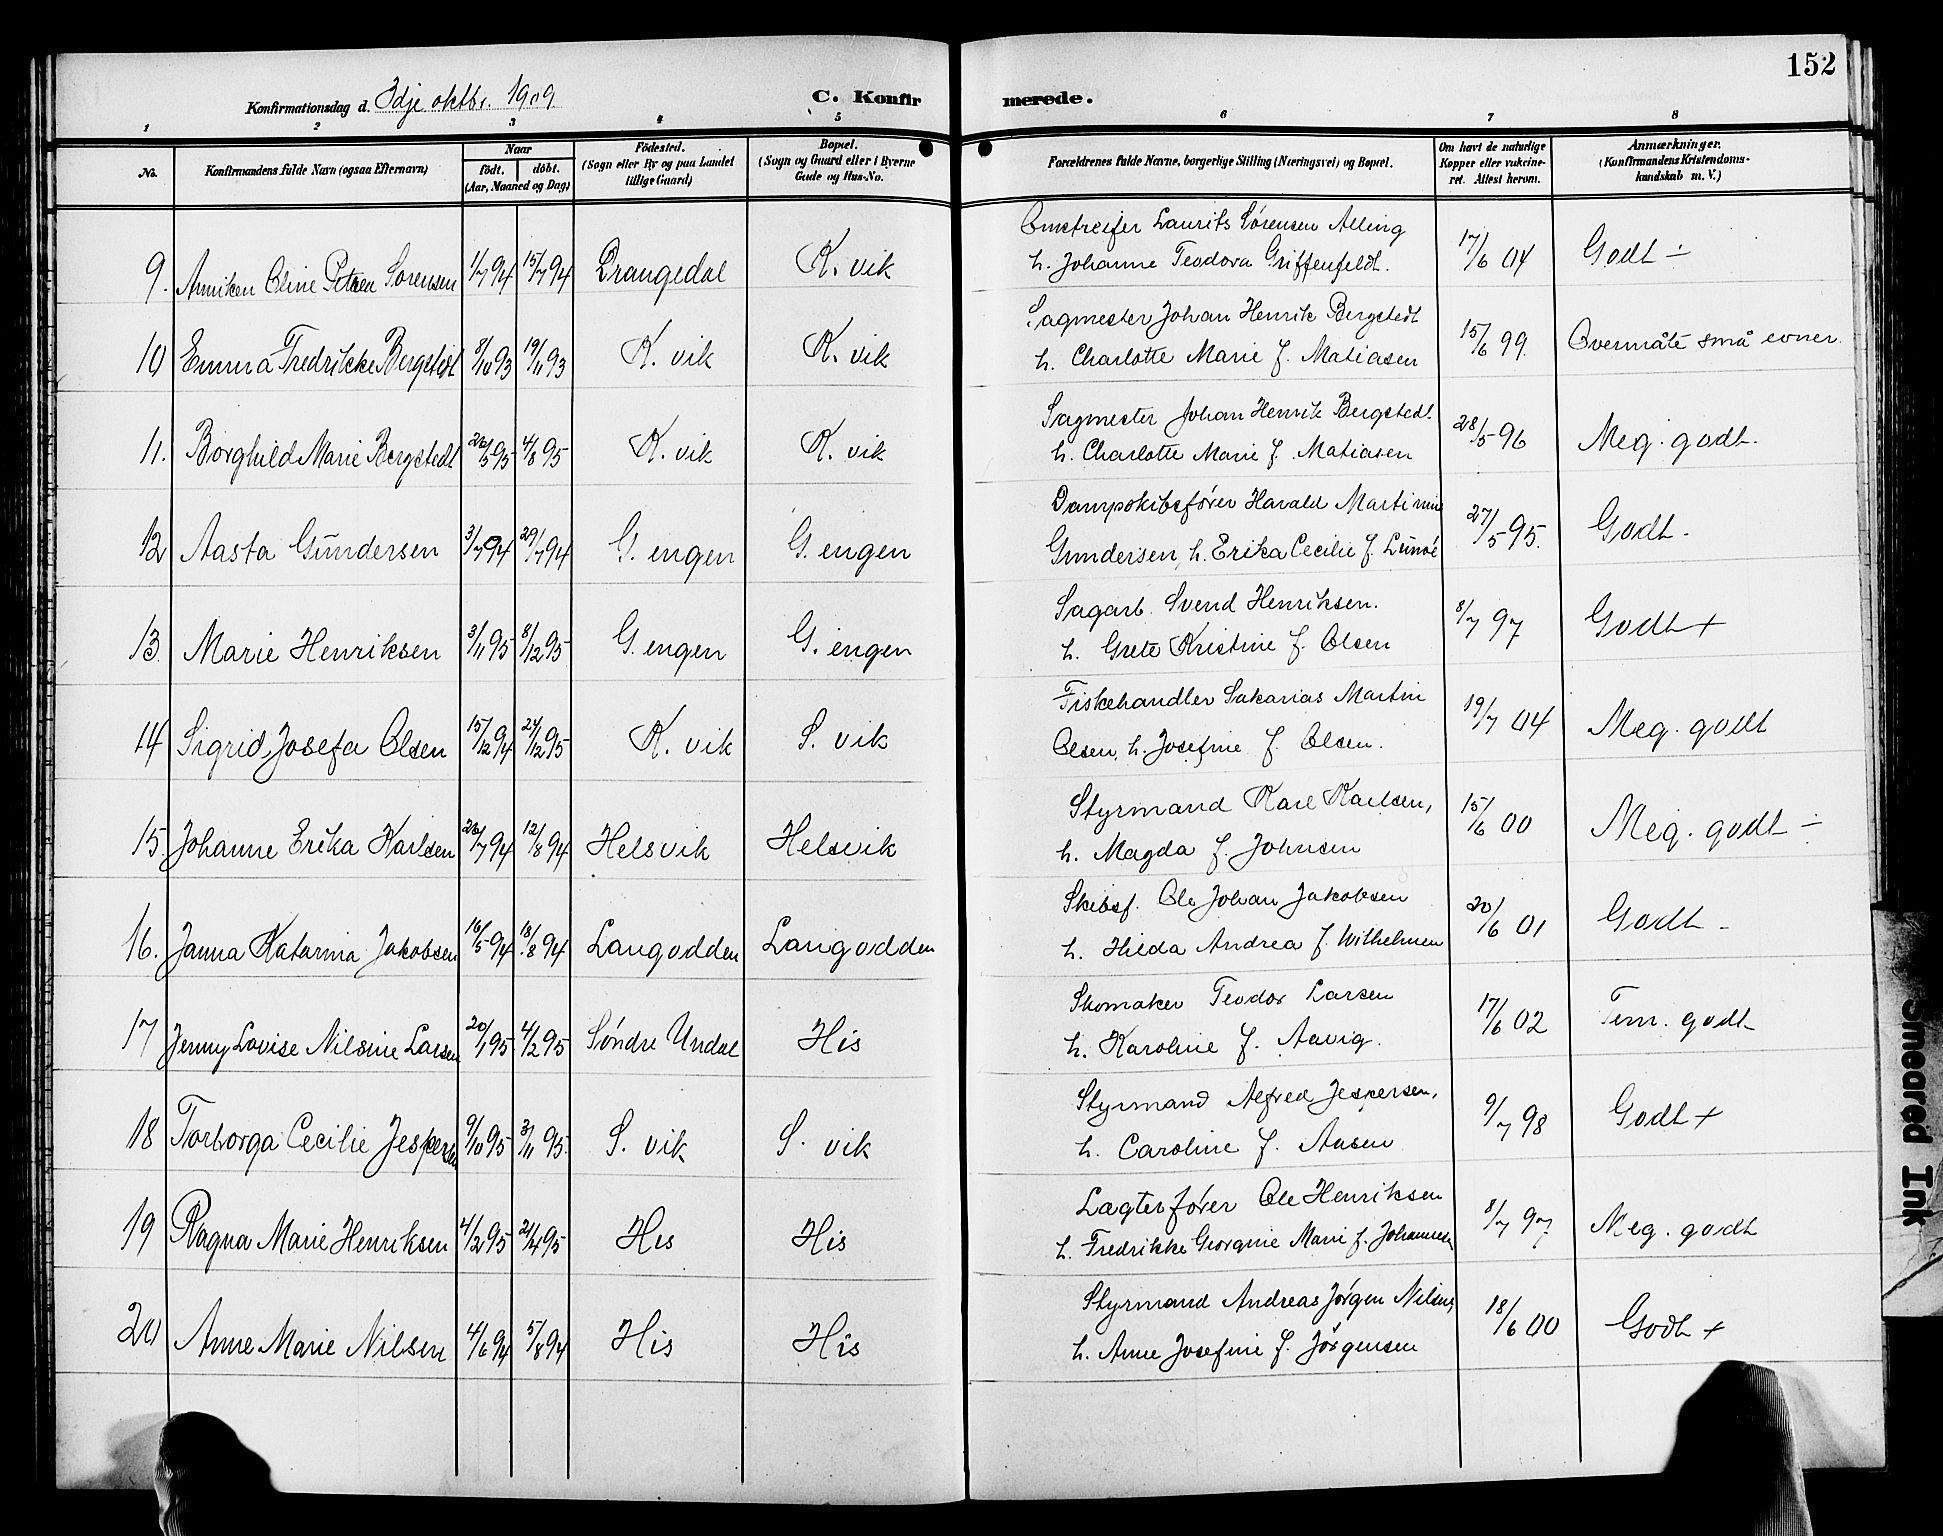 152
Konfirmationsdag d. 3dje oktbr. 1909
C. Konfirmerede.
1 2 3 4 5 6 7 8
No.
Konfirmandens fulde Navn (ogsaa Efternavn)
Naar
födt. döbt.
(Aar, Maaned og Dag)
Födested.
(Sogn eller By og paa Landet
tillige Gaard)
Bopæl.
(Sogn og Gaard eller i Byerne
Gade og Hus-No.
Forældrenes fulde Navne, borgerlige Stilling (Næringsvei) og Bopæl.
Om havt de naturlige
Kopper eller vakcine-
ret. Attest herom.
Anmærkninger.
(Konfirmandens Kristendoms-
kundskab m. V.)
Omstreifer Laurits Sørensen Alling
9. Anniken Oline Petrea Sørensen 1/7 94 15/7 94 Drangedal K. vik h. Johanne Teodora Griffenfeldt. 17/6 04 Godt ÷
Sagmester Johan Henrik Bergstedt
10 Emma Fredrikke Bergstedt 8/10 93 19/11 93 K. vik K. vik h. Charlotte Marie f. Matiasen 15/6 99. Overmåte små evner.
Sagmester Johan Henrik Bergstedt
11. Borghild Marie Bergstedt 4/8 95 K. vik K. vik h. Charlotte Marie f. Matiasen 28/5 96 Meg. godt.
Dampskibsfører Harald Martinius
12 Aasta Gundersen 3/7 94 29/7 94 G. engen G. engen Gundersen, h. Erika Cecilie f. Lunöe 27/5 95. Godt -
Sagarb. Svend Henriksen.
13. Marie Henriksen 3/11 95 8/12 95 G. engen G. engen h. Grete Kristine f. Olsen 8/7 97 Godt +
Fiskehandler Sakarias Martin
14 Sigrid Josefa Olsen 15/12 94 24/12 95 K. vik S. vik Olsen, h. Josefine f. Olsen. 19/7 04 Meg. godt
Styrmand Karl Karlsen,
15. Johanne Erika Karlsen 12/8 94 Helsvik Helsvik h. Magda f. Johnsen 15/6 00 Meg. godt ÷
Skibsf. Ole Johan Jakobsen
16. Janna Katarina Jakobsen 16/5 94 18/8 94 Langodden Langodden h. Hilda Andrea f. Wilhelmsen 20/6 01 Godt -
Skomaker Teodor Larsen
17 Jenny Lovise Nilsine Larsen 20/1 95 4/2 95 Søndre Undal His h. Karoline f. Aavig. 17/6 02 Tem. godt
Styrmand Alfred Jespersen,
18 Torborga Cecilie Jespersen 9/10 95 3/11 95. S. vik S. vik h. Caroline f. Aasen 9/7 98 Godt +
Lægterfører Ole Henriksen
19 Ragna Marie Henriksen 4/2 95 21/4 95 His His h. Fredrikke Georgine Marie f. Johannesen 8/7 97. Meg. godt
Styrmand Andreas Jørgen Nilsen,
20 Anne Marie Nilsen 4/6 94 5/8 94 His His h. Anne Josefine f. Jørgensen 18/6 00 Godt +
Smeared Ink